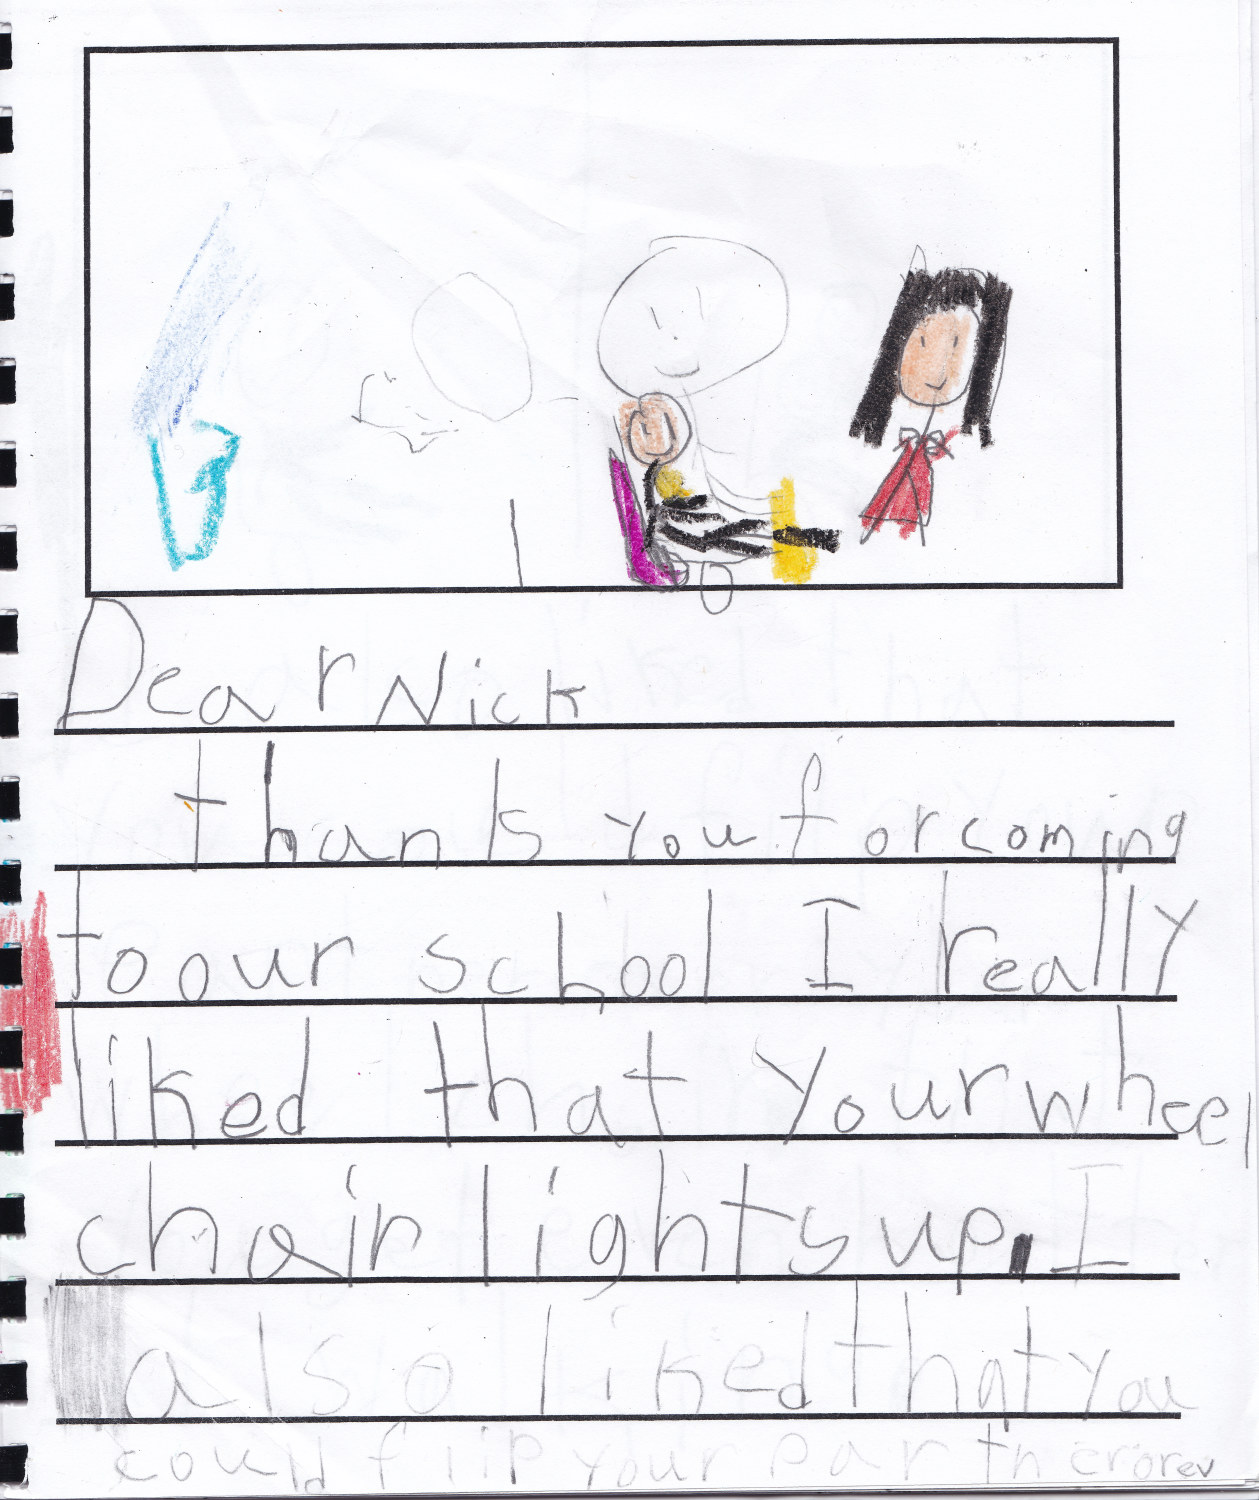 Dear Nick
thank you for coming
to our school I really
liked that your wheel
chair lights up. I
also liked that you
could flip your par